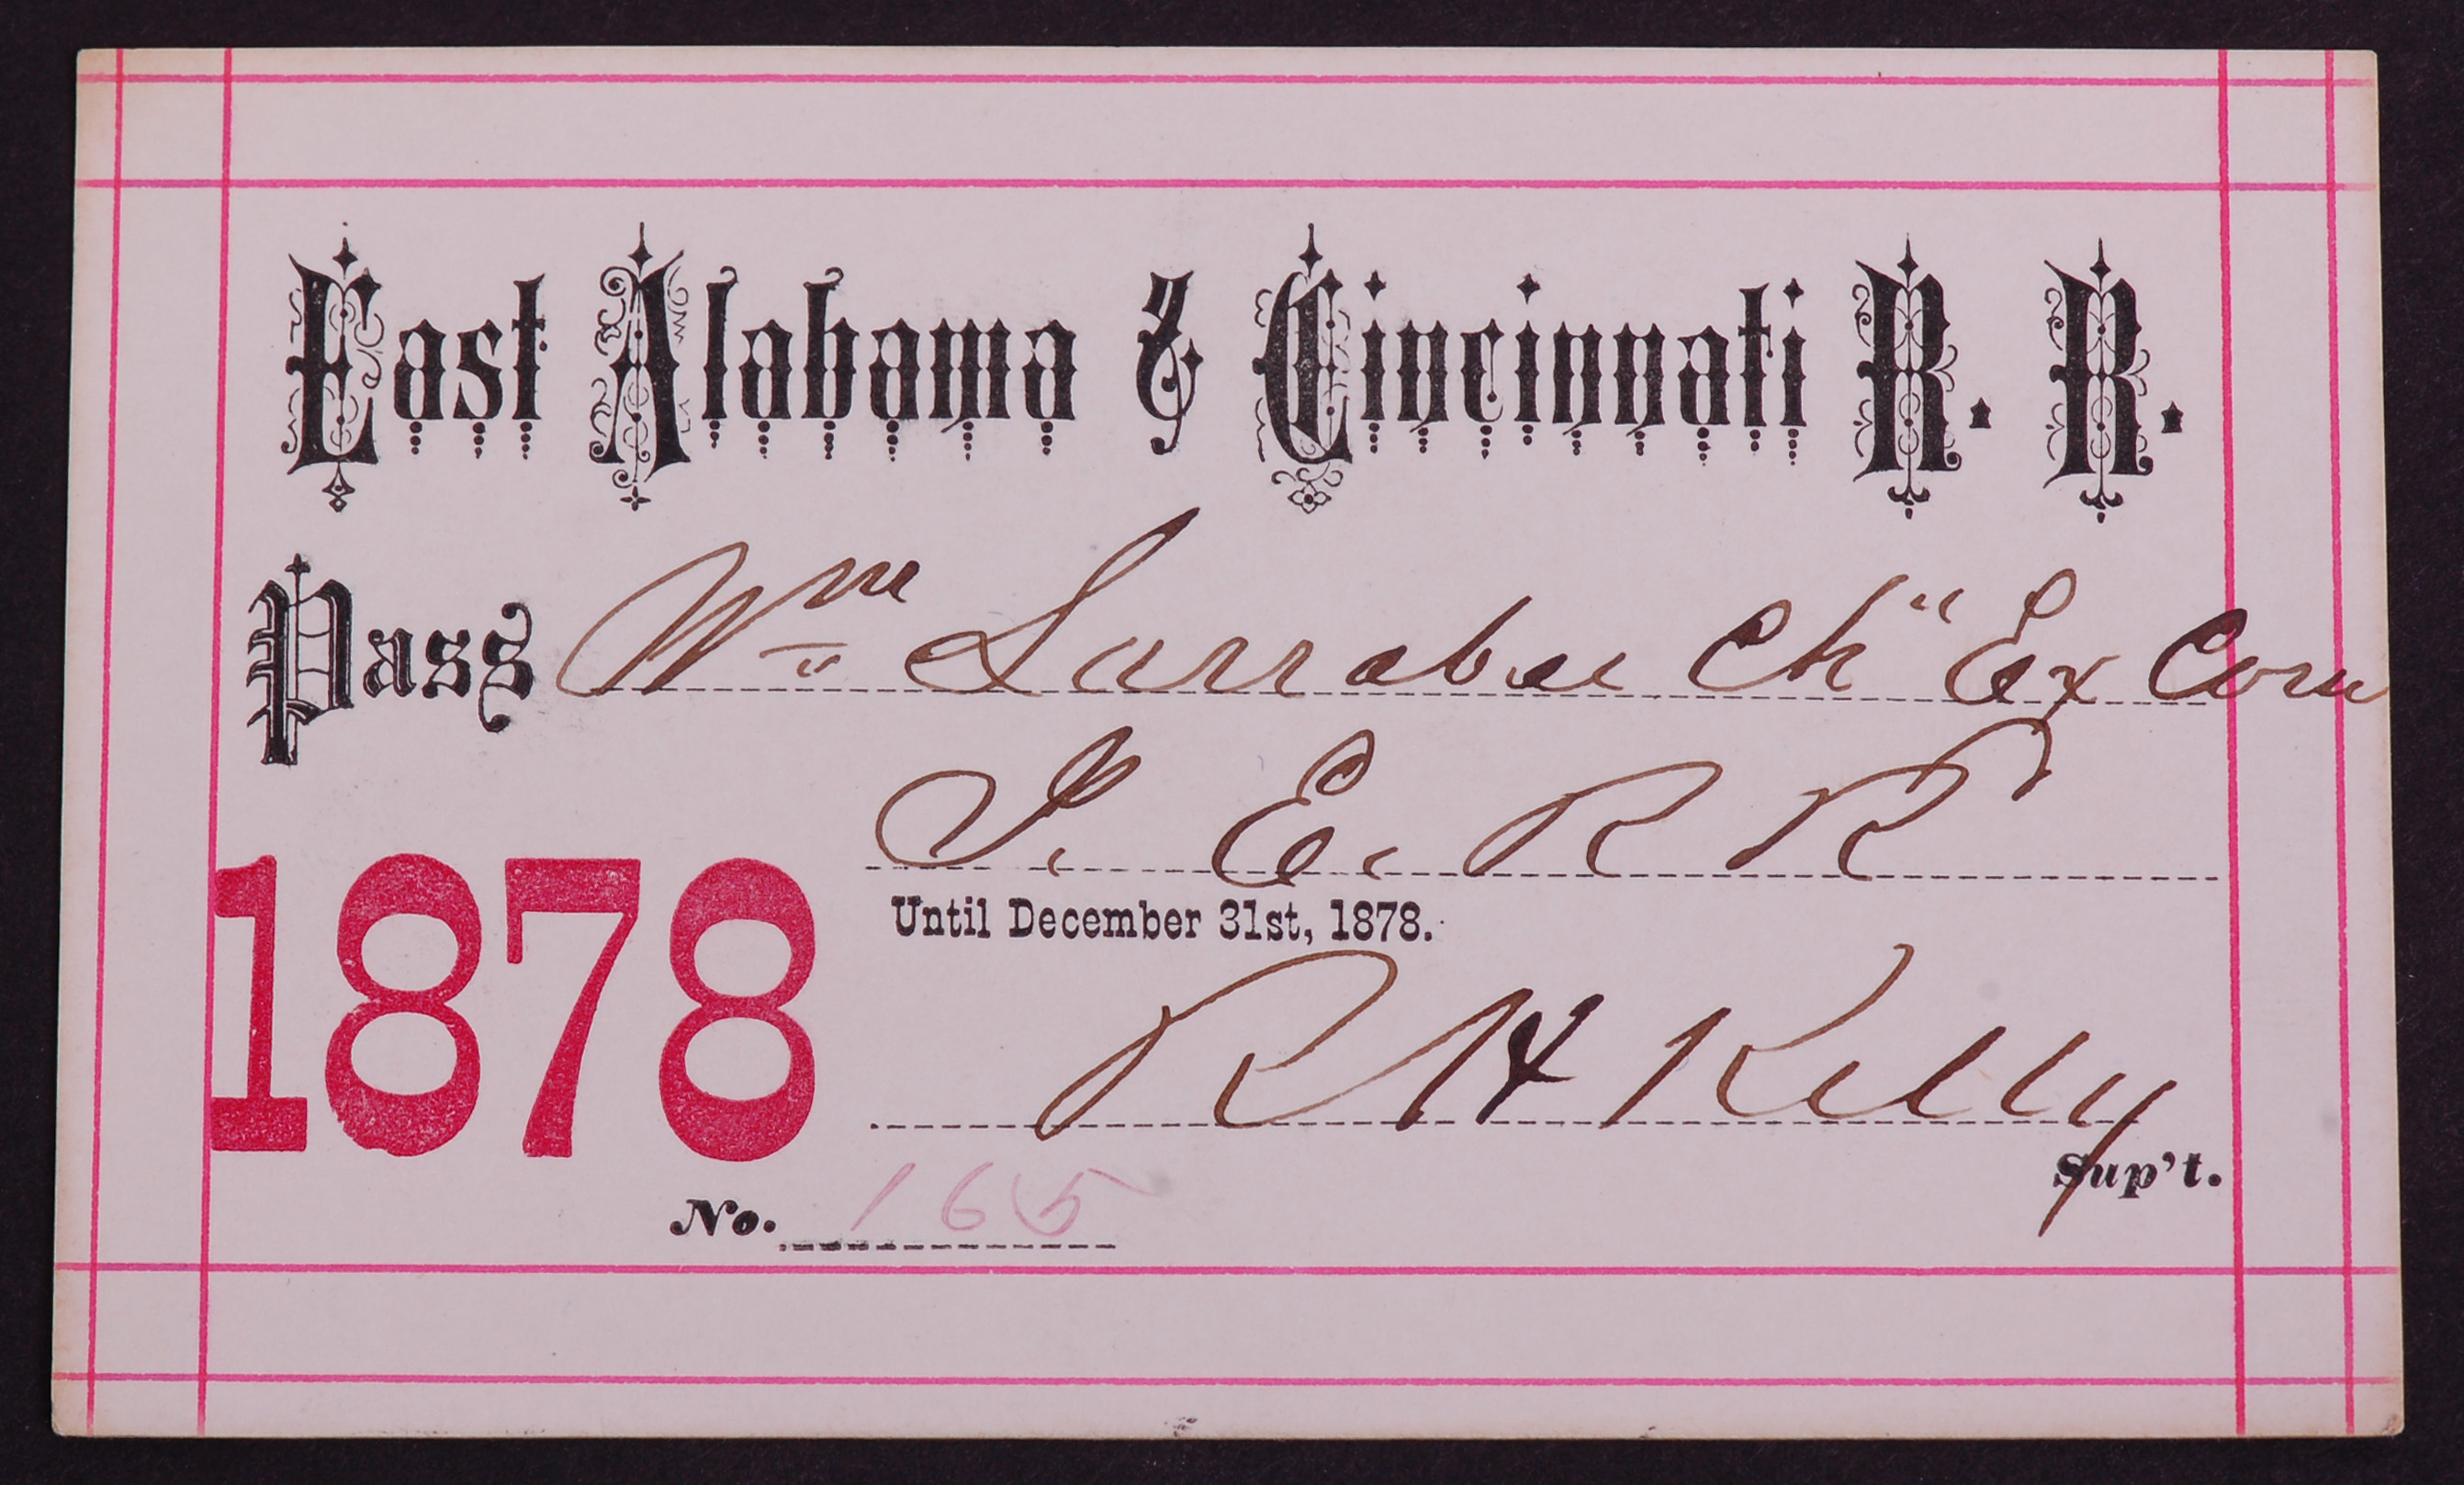 East Alabama & Cincinnati R. R.
Pass Wm Larrabee Chn Ex Com
I. E. R R
1878
Until December 31st, 1878.
R H Kelly
Sup't.
No. 165